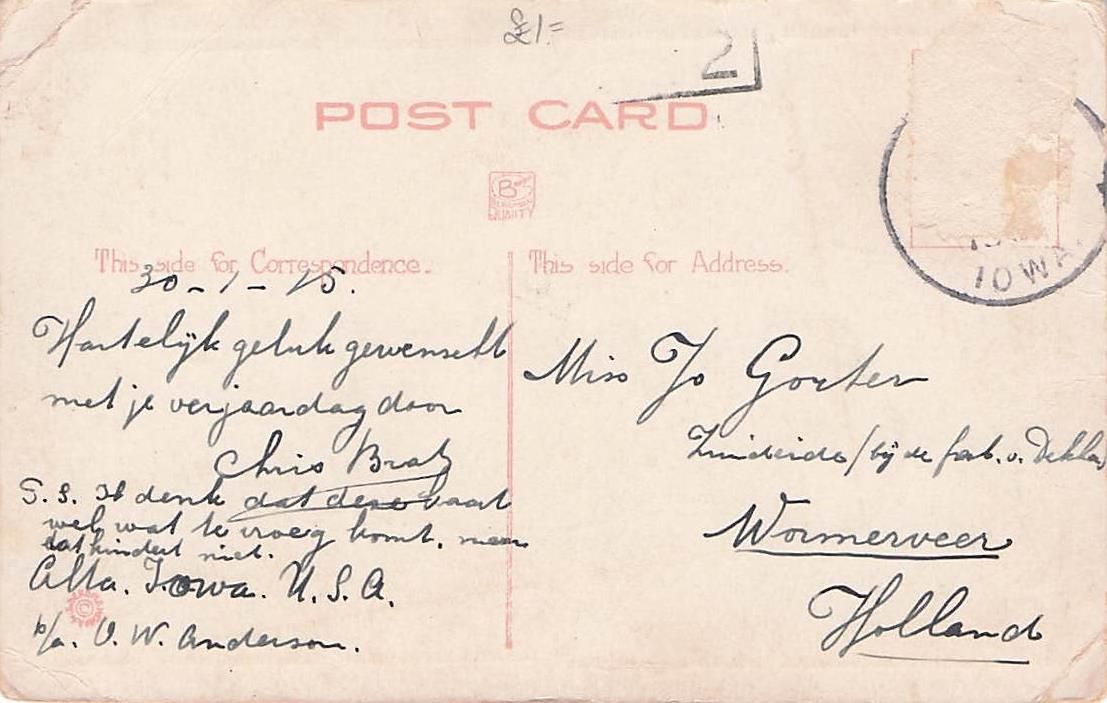 £1=
2
POST CARD
B
QUALITY
This side for Correspondence.
30-1-15.
Hartelijk geluk gewenscht
met je verjaardag door
Chris Brat
P.S. Ik denk dat deze kaart
wel wat te vroeg komt, maar
dat hindert niet.
Alta. Iowa. U.S.A.
p/a. O. W. Anderson.
This side for Address.
IOWA.
Miss Jo Gorter
Zuideinde / bij de fab. v. Dekker
Wormerveer
Holland